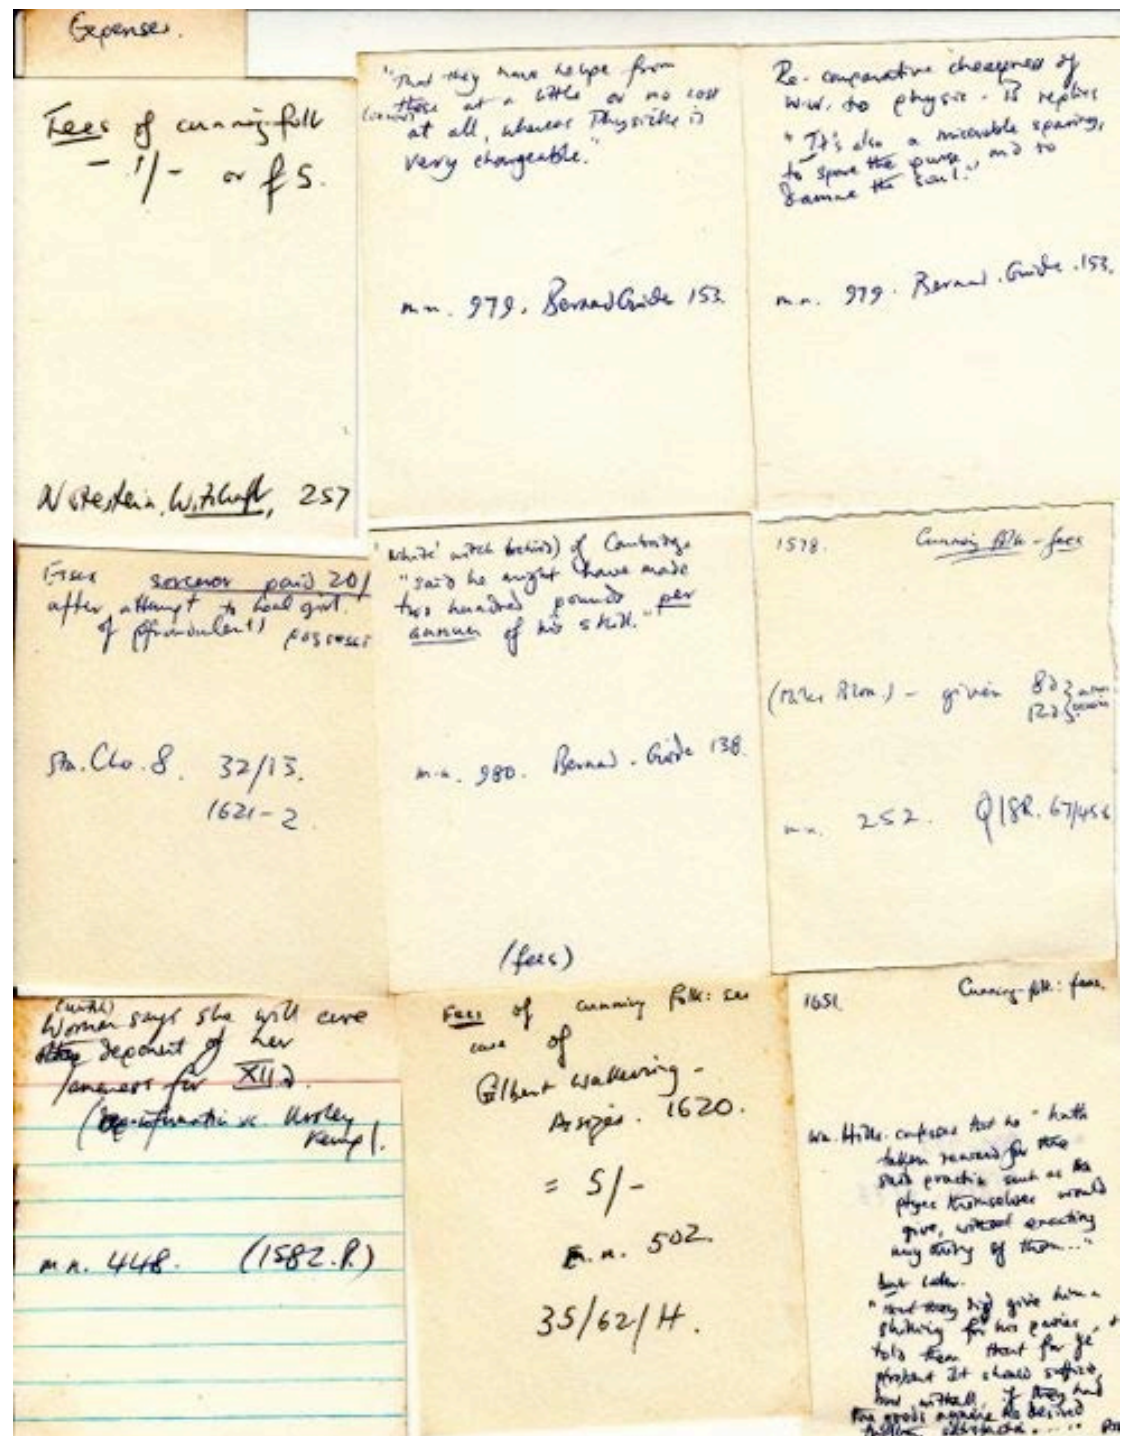 Expenses.
Fees of cunning folk
- 1/- or £5.
Notestein, Witchcraft, 257
"That they have helpe from
these at a little or no cost
at all, whereas Physicke is
very chargeable."
m.n. 979. Bernard Guide 153.
Re. comparative cheapness of
w.w. to physic - B replies
"It's also a miserable sparing,
to spare the purse, and to
damne the soul."
m.n. 979. Bernard. Guide. 153.
Essex sorceror paid 20/
after attempt to heal girl
of (fraudulent) possess
Sta. Cha. 8. 32/13.
1621-2.
'White' witch of Cambridge
"said he might have made
two hundred pounds per
annum of his skill."
m.n. 980. Bernard. Guide 138.
(fees)
1578. Cunning folk - fees
- given 8d
12d
m.n. 252. Q/SR. 67/45
Woman says she will cure
deposit of her
lameness for XIId.
(information vs Ursley
Kemp).
m.n. 448. (1582. P.)
Fees of cunning folk: see
case of
Gilbert Wakering -
Assizes. 1620.
= 5/-
m.n. 502.
35/62/H.
1651. Cunning-folk: fees.
Wm. Hills. confesses that he "hath
taken reward for the
said practice such as the
ptyes themselves would
give, without exacting
any thing of them..."
but later.
did give him a
shilling for his paines, &
told them that for ye
present it should suffice,
but withall, if they had
the goods againe he desired